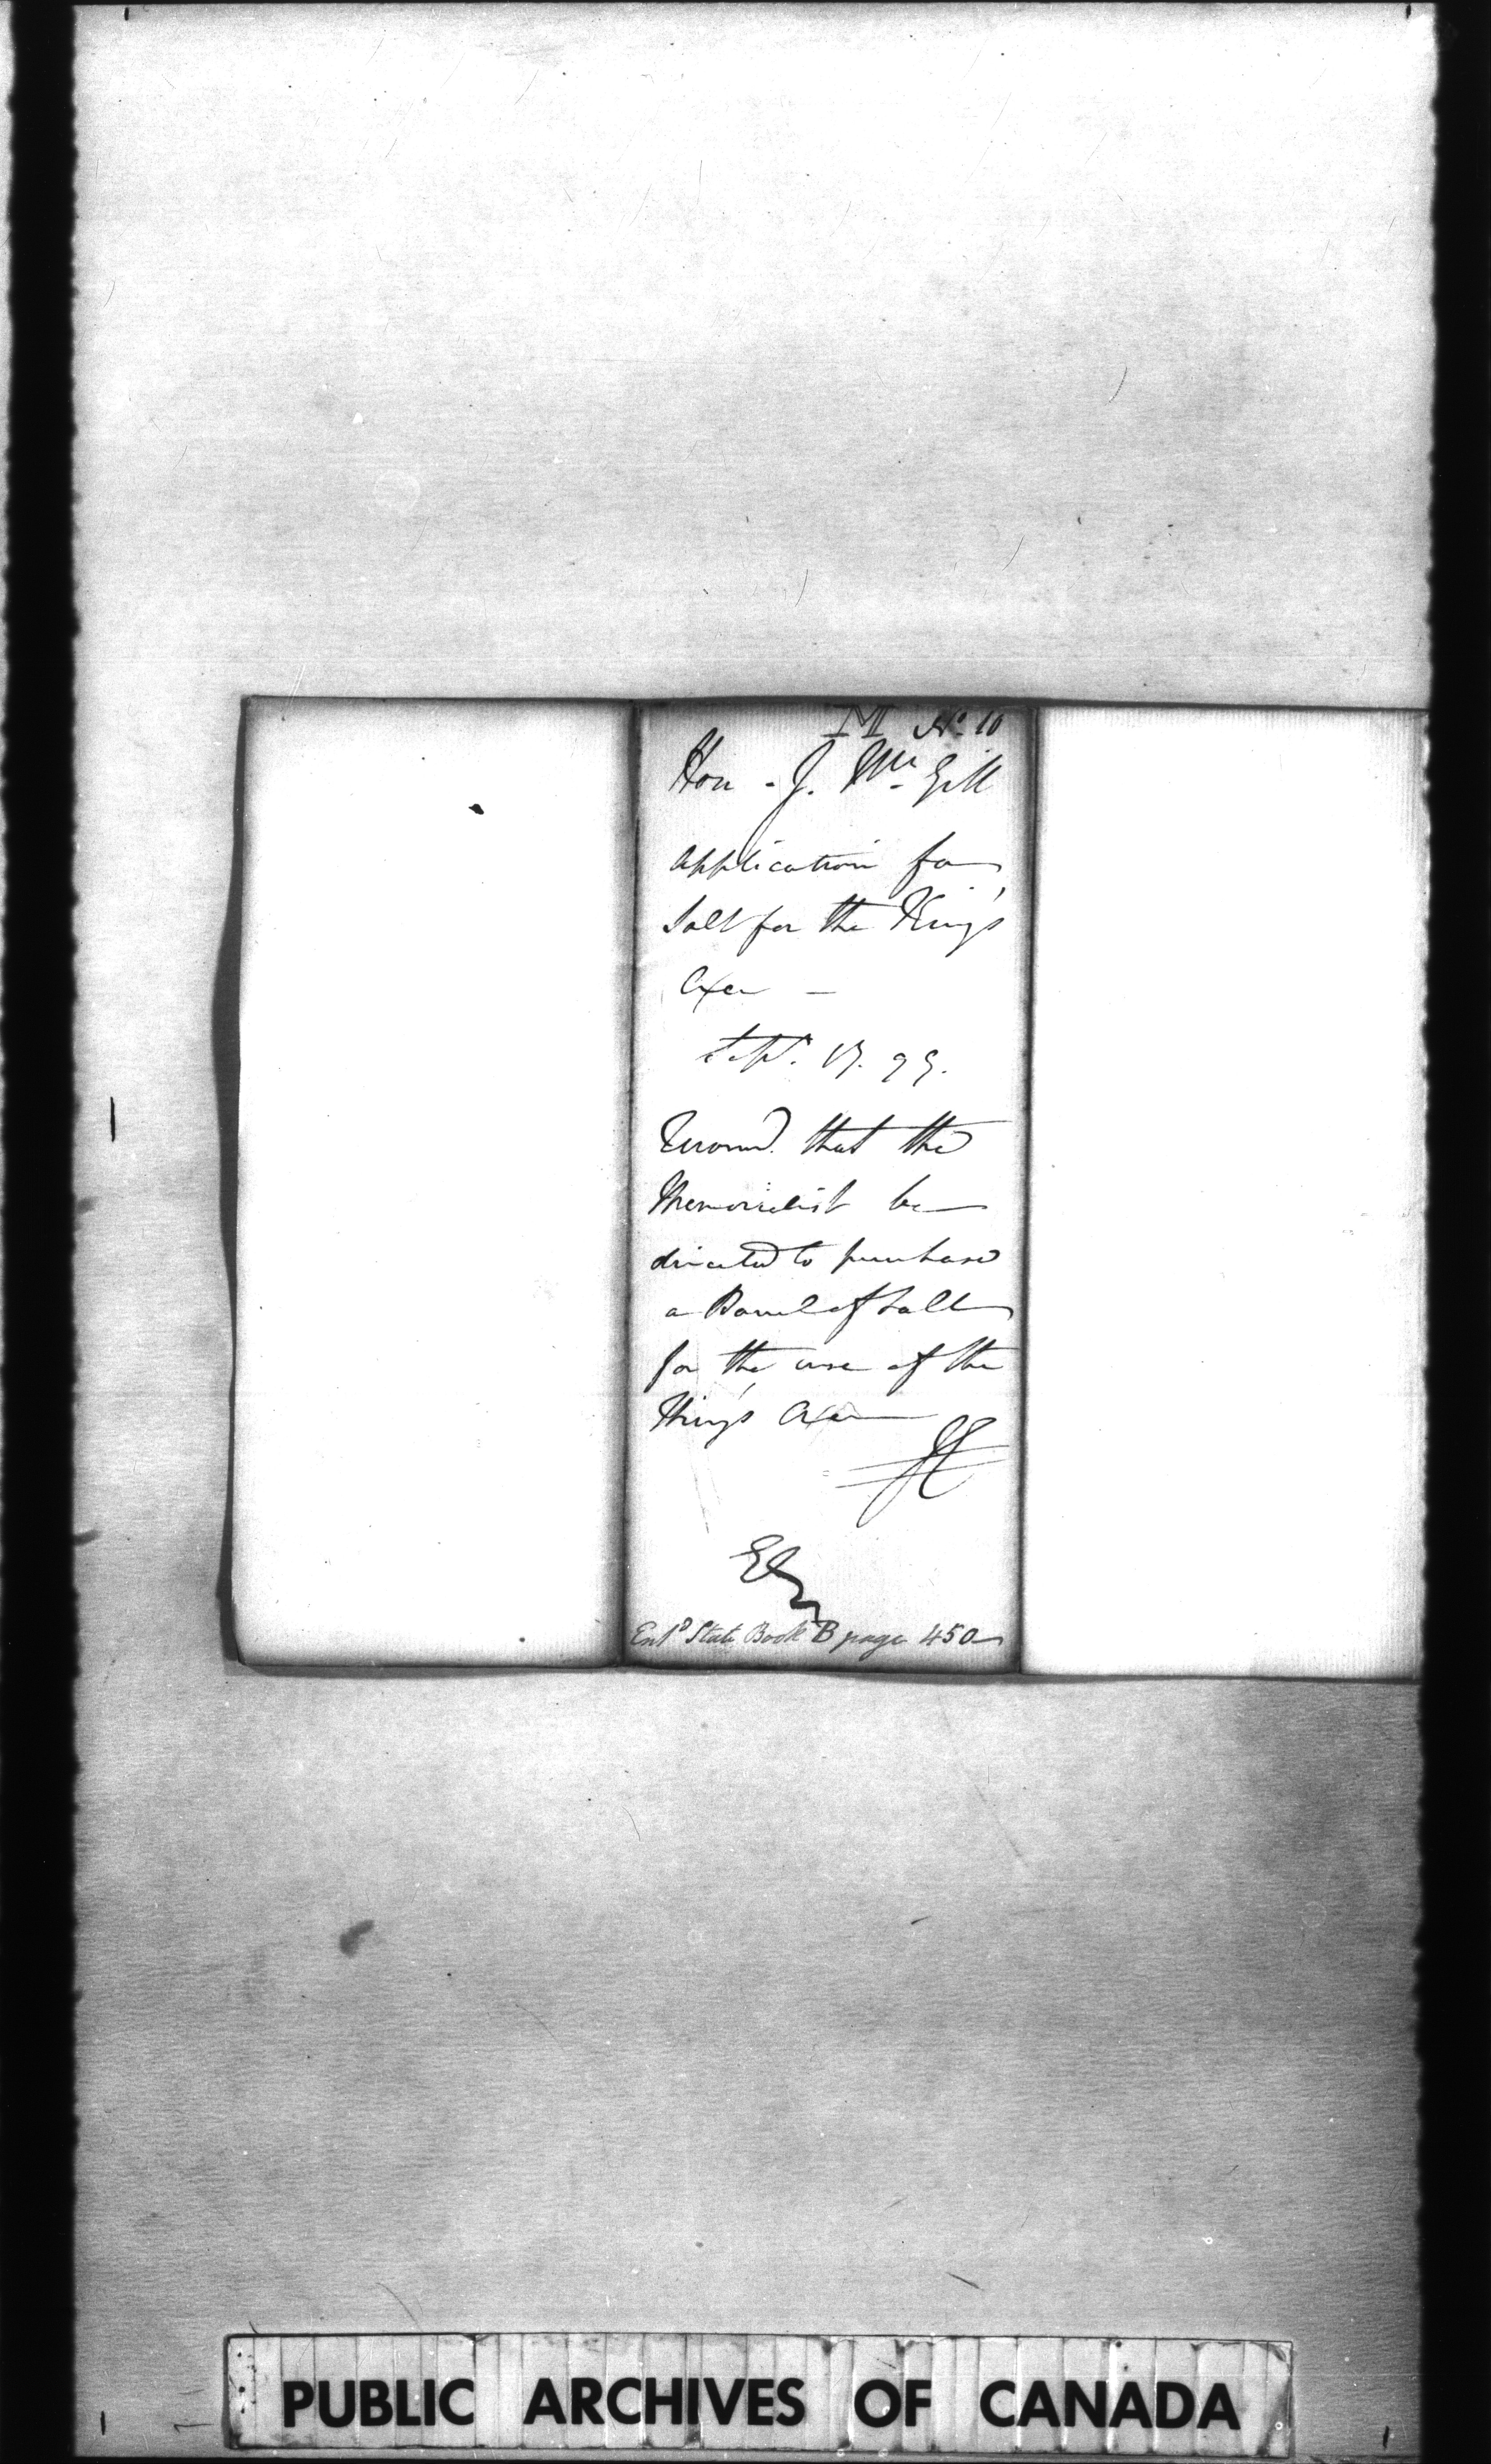 M No. 10
Hon - J. McGill
Application for
Salt for the King's
Oxen —
Sept. 17. 99.
Recomd. that the
Memorialist be
directed to purchase
a Barrel of Salt
for the use of the
King's Oxen
Entd State Book B page 450
PUBLIC ARCHIVES OF CANADA